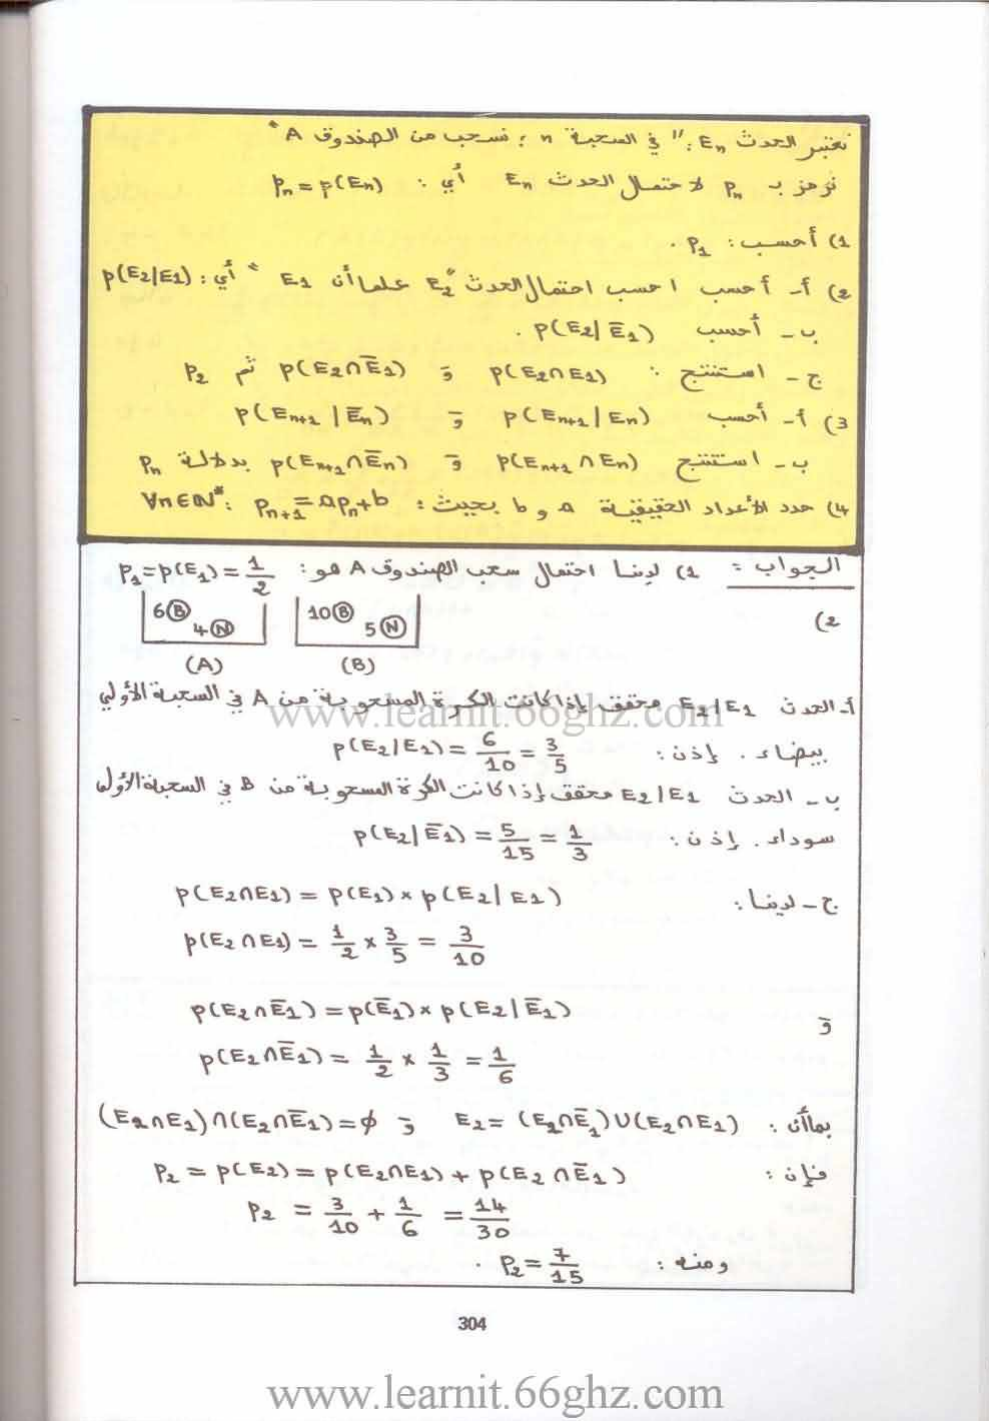 نعتبر الحدث En : " في السحبة n ؛ نسحب من الصندوق A "
نرمز بـ Pn لاحتمال الحدث En أي : Pn = p(En)
1) أحسب : P1 .
2) أ- أحسب احسب احتمال الحدث "E2 علما أن E1 " أي : p(E2/E1)
ب - أحسب p(E2/Ē1) .
ج - استنتج : p(E2∩E1) و p(E2∩Ē1) ثم P2
3) أ- أحسب p(En+1/En) و p(En+1/Ēn)
ب - استنتج p(En+1∩En) و p(En+1∩Ēn) بدلالة Pn
4) حدد الأعداد الحقيقية a و b بحيث : ∀n∈ℕ* : Pn+1 = aPn+b
الجواب : 1) لدينا احتمال سحب الصندوق A هو : P1 = p(E1) = 1/2
2)
6(B) 4(N) 10(B) 5(N)
(A) (B)
أ- الحدث E2/E1 محقق إذا كانت الكرة المسحوبة من A في السحبة الأولى
بيضاء . إذن : p(E2/E1) = 6/10 = 3/5
ب - الحدث E2/E1 محقق إذا كانت الكرة المسحوبة من B في السحبة الأولى
سوداء . إذن : p(E2/Ē1) = 5/15 = 1/3
ج - لدينا : p(E2∩E1) = p(E1) × p(E2/E1)
p(E2∩E1) = 1/2 × 3/5 = 3/10
و p(E2∩Ē1) = p(Ē1) × p(E2/Ē1)
p(E2∩Ē1) = 1/2 × 1/3 = 1/6
بما أن : E2 = (E2∩Ē1)∪(E2∩E1) و (E2∩E1)∩(E2∩Ē1) = ϕ
فإن : P2 = p(E2) = p(E2∩E1) + p(E2∩Ē1)
P2 = 3/10 + 1/6 = 14/30
ومنه : P2 = 7/15 .
304
www.learnit.66ghz.com
www.learnit.66ghz.com